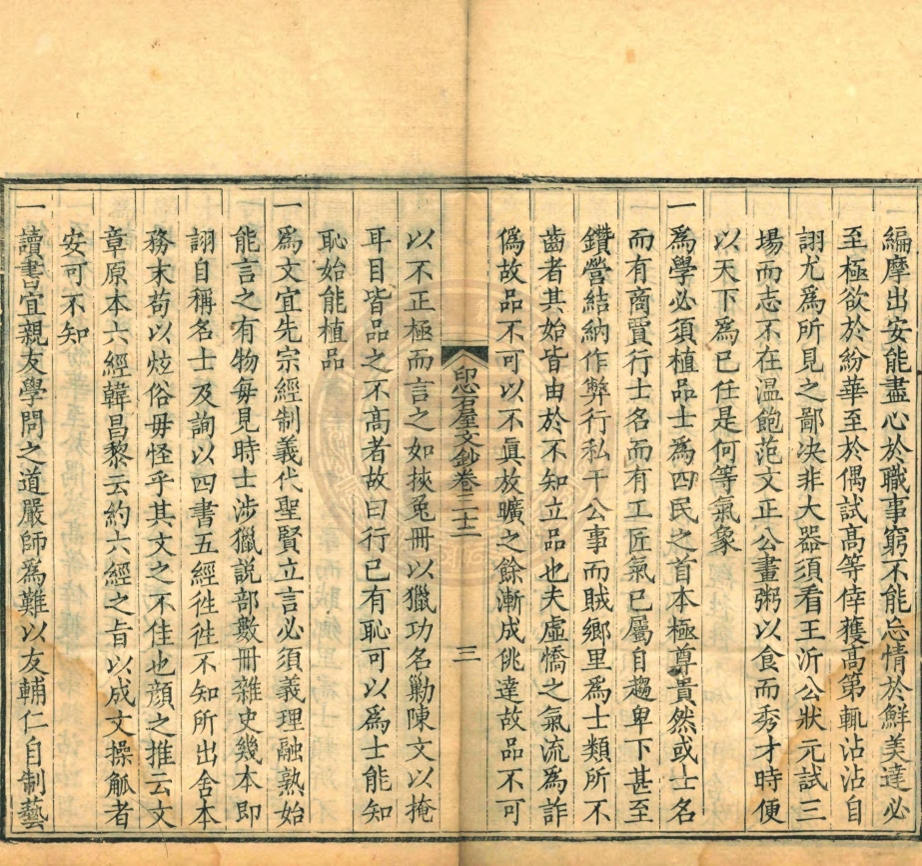 編摩出安能盡心於職事窮不能忘情於鮮美達必
至極欲於紛華至於偶試高等倖獲高第輒沾沾自
詡尤爲所見之鄙决非大器須看王沂公狀元試三
場而志不在温飽范文正公畫粥以食而秀才時便
以天下爲已任是何等氣象
一爲學必須植品士爲四民之首本極尊貴然或士名
而有商賈行士名而有工匠氣已屬自趨卑下甚至
鑽營結納作弊行私干公事而賊鄉里爲士類所不
齒者其始皆由於不知立品也夫虛憍之氣流為詐
僞故品不可以不眞放曠之餘漸成佻達故品不可
印心石屋文鈔卷二十二 三
以不正極而言之如挾兔冊以獵功名勦陳文以掩
耳目皆品之不高者故曰行已有恥可以爲士能知
恥始能植品
一爲文宜先宗經制義代聖賢立言必須義理融熟始
能言之有物每見時士涉獵説部數冊雜史幾本即
詡自稱名士及詢以四書五經徃徃不知所出舍本
務末苟以炫俗毋怪乎其文之不佳也顏之推云文
章原本六經韓昌黎云約六經之旨以成文操觚者
安可不知
一讀書宜親友學問之道嚴師爲難以友輔仁自制藝